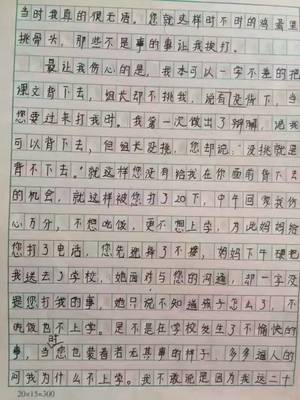 当时我真的很无语，您就这样时不时的鸡蛋里
挑骨头，那些不是事的事让我挨打。
最让我伤心的是，我本可以一字不差的把
课文背下去，组长却不挑我，说我没背下，当
您要过来打我时。我第一次做出了辩解，说我
可以背下去，但组长没挑，您却说：没挑就是
背不下去。就这样您没有给我在你面前背下去
的机会，就这样被您打了20下，中午回家我伤
心万分，不想吃饭，更不想上学，为此妈妈给
您打了电话，您先选择了不接，妈妈下午硬把
我送去了学校，她面对与您的沟通，却一字没
提您打我的事，她只说不知道孩子怎么了，不
吃饭也不上学。是不是在学校发生了不愉快的
事，当时您也装着若无其事的样子，多多逼人的
问我为什么不上学。我不敢说是因为我这二十
20×15=300